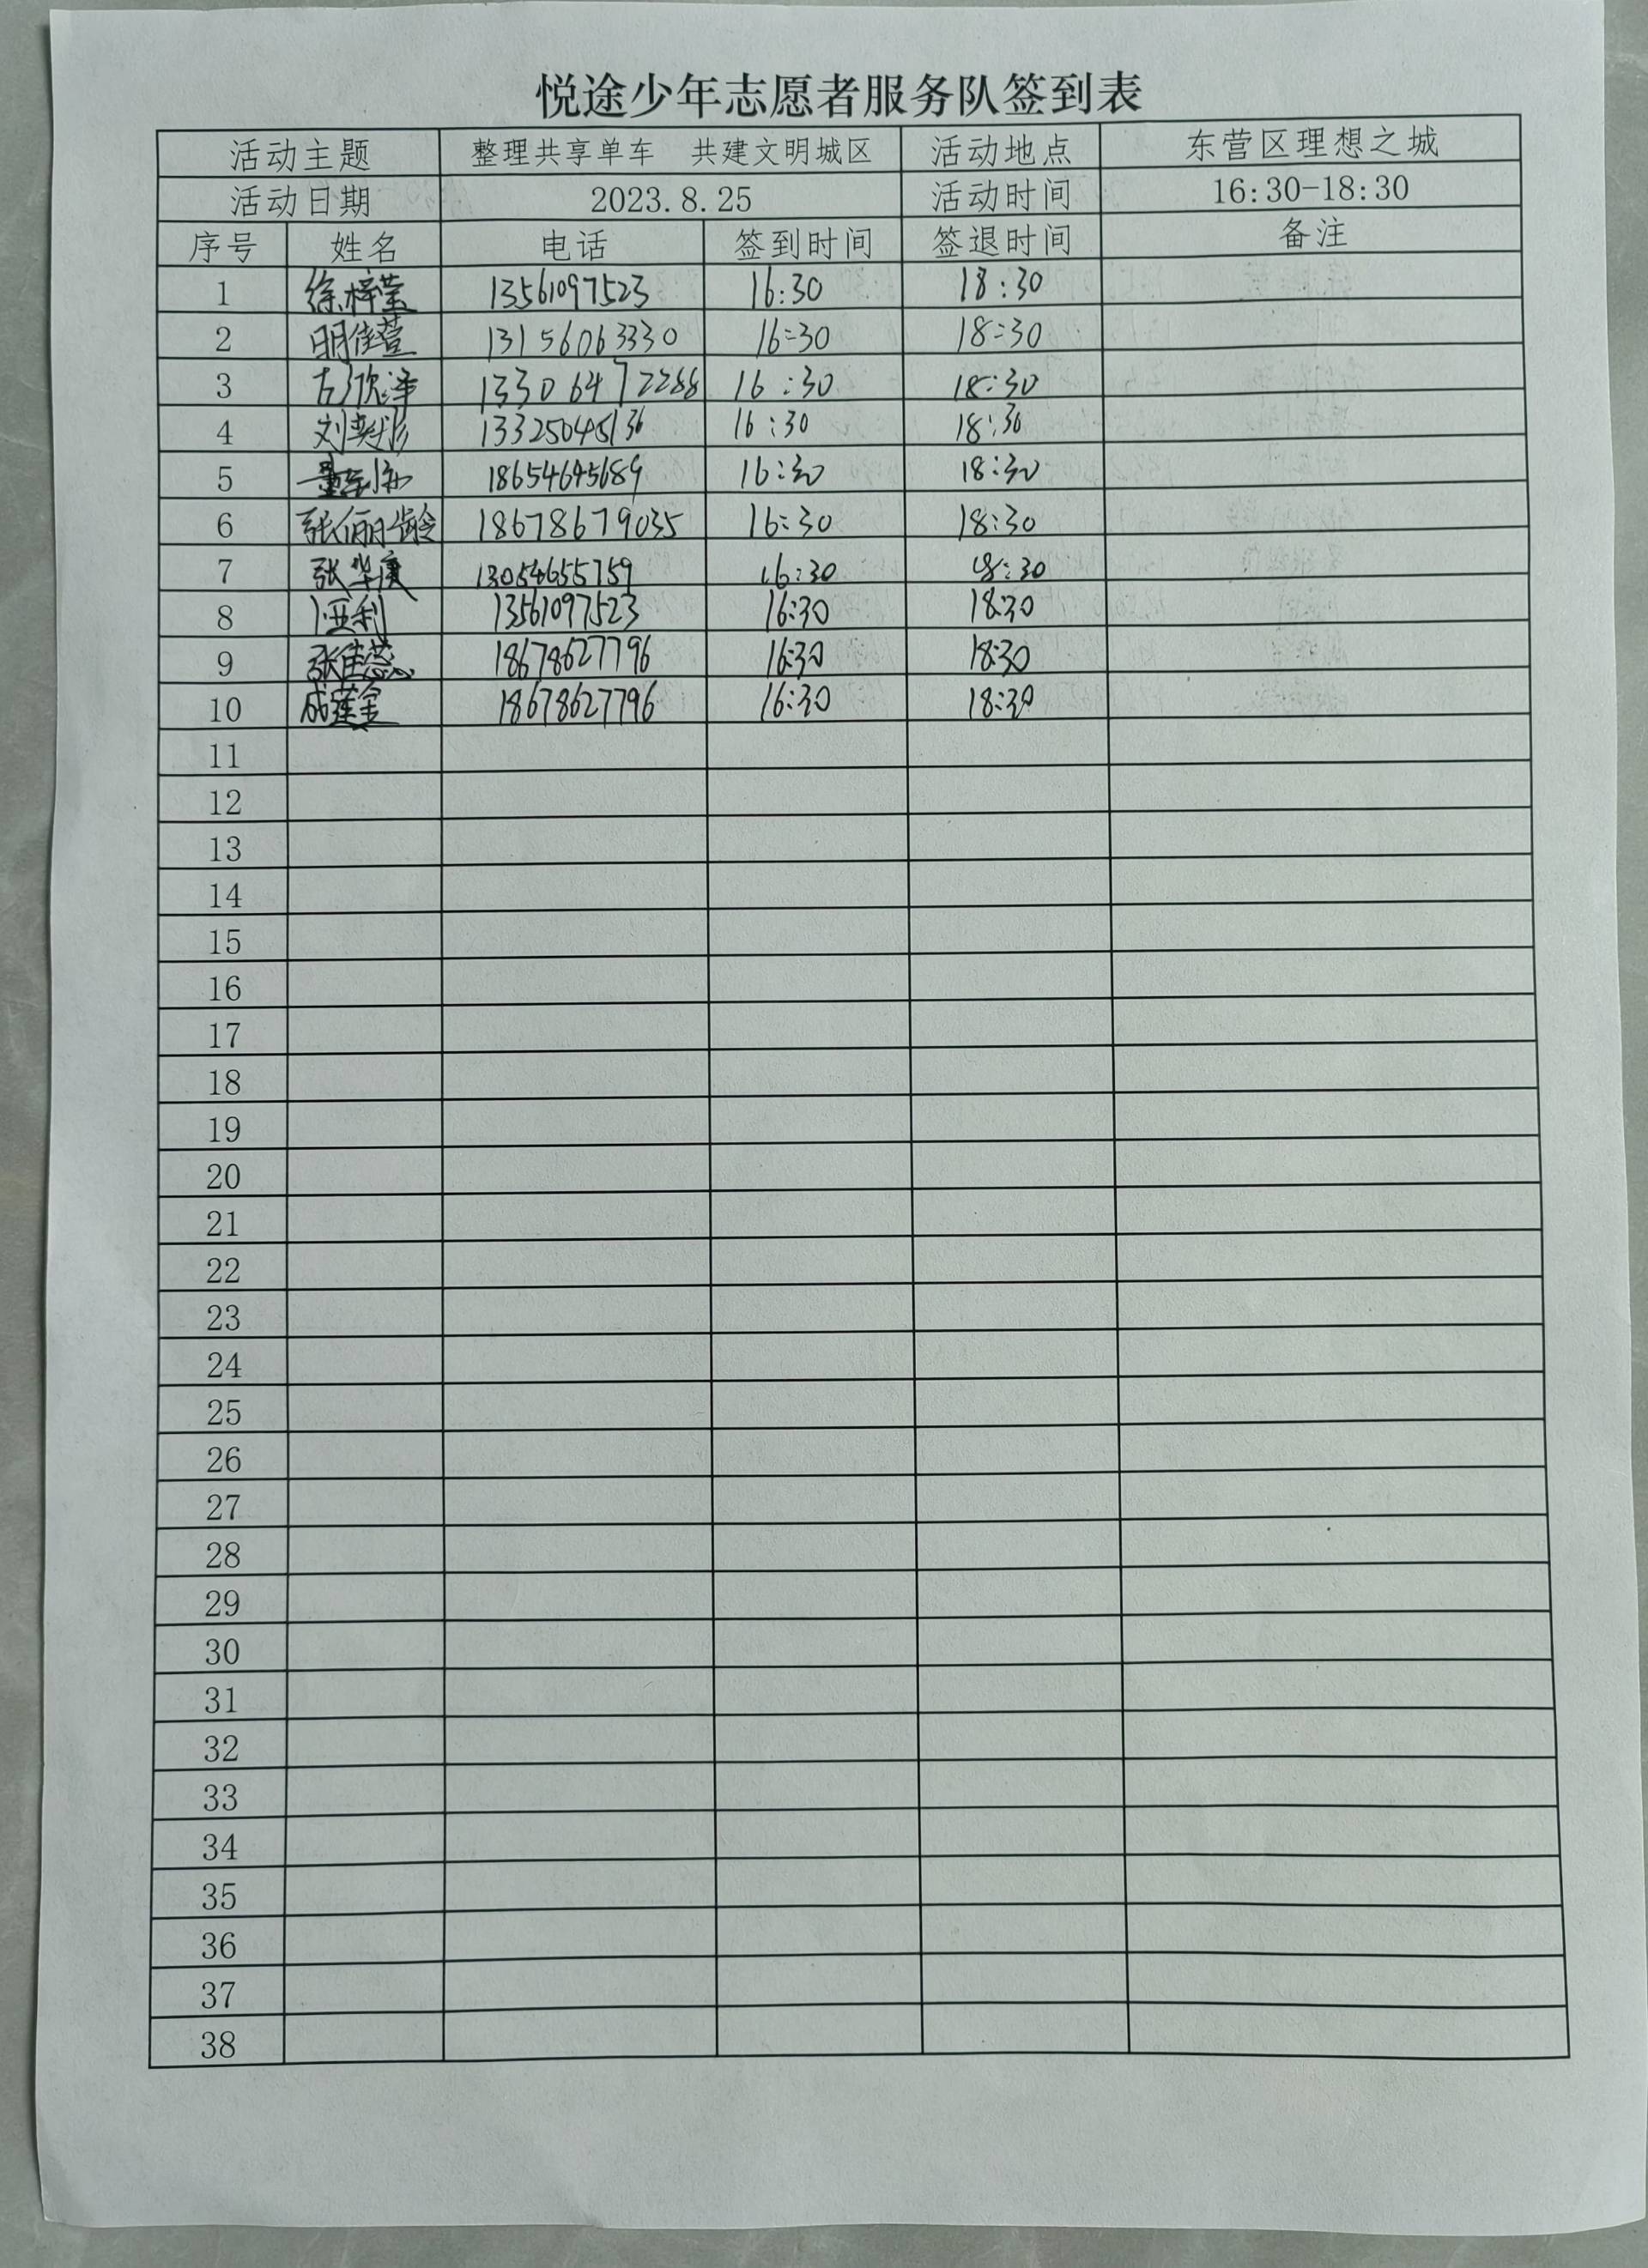 悦途少年志愿者服务队签到表
活动主题 整理共享单车 共建文明城区 活动地点 东营区理想之城
活动日期 2023.8.25 活动时间 16:30-18:30
序号 姓名 电话 签到时间 签退时间 备注
1 徐梓莹 13561097523 16:30 18:30
2 明佳萱 13156063330 16:30 18:30
3 13306472288 16:30 18:30
4 刘奕彤 13325045136 16:30 18:30
5 18654645689 16:30 18:30
6 张俪龄 18678679035 16:30 18:30
7 张华庚 13054655759 16:30 18:30
8 卜亚利 13561097523 16:30 18:30
9 张佳蕊 18678627796 16:30 18:30
10 成莲金 18678627796 16:30 18:30
11
12
13
14
15
16
17
18
19
20
21
22
23
24
25
26
27
28
29
30
31
32
33
34
35
36
37
38